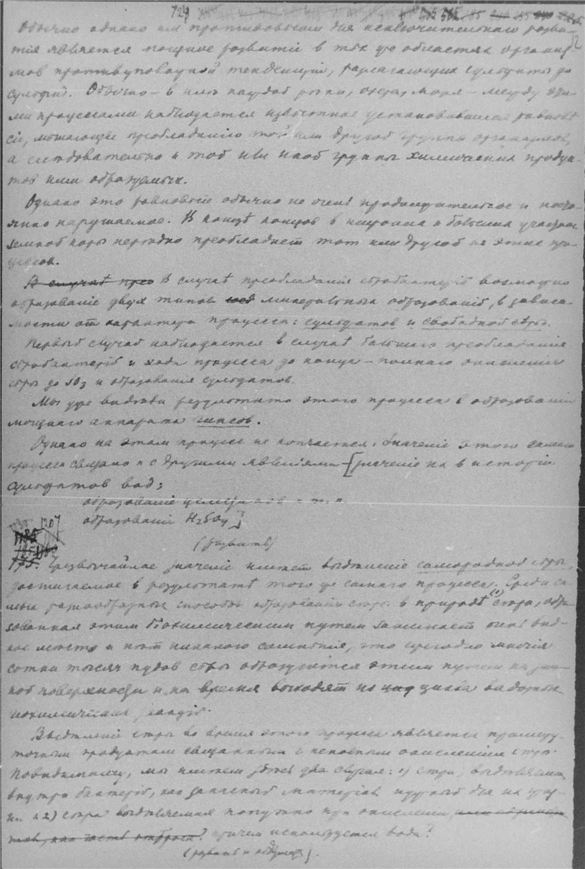 729
Обычно однако им противовесом для исключительного разви-
тія является мощное развитіе в тѣх же областях организ-
мов противуположной тенденціи, разлагающих сульфаты до
сульфид. Обычно – в илах каждой рѣки, озера, моря – между эти-
ми процессами наблюдается известное установившееся равновѣ-
сіе, мѣшающее преобладанію той или другой группы организмов,
а следовательно и той или иной группы химических продук-
тов ими образуемых.
Однако это равновѣсіе обычно не очень продолжительное и посто-
янно нарушаемое. В концѣ концов в ... и больших участках
земной коры нерѣдко преобладает тот или другой из этих про-
цессов.
В случаѣ преобладанія серобактерій возможно
образованіе двух типов минеральных образованій, в зависи-
мости от характера процесса: сульфатов и свободной сѣры.
Первый случай наблюдается в случаѣ большого преобладанія
серобактерій и хода процесса до конца – полнаго окисленія
серы до SO3 и образованія сульфатов.
Мы уже видѣли результаты этого процесса в образованіи
мощнаго аппарата гипсов.
Однако на этом процесс не кончается. Значеніе этого самаго
процесса связано и с другими явленіями – [значеніе их в исторіи
сульфатов вод;
образованіе
образованіе H2SO4]
(развить)
195. Чрезвычайное значеніе имѣет выдѣленіе самородной сѣры,
достигаемое в результатѣ того же самаго процесса. Среди са-
мых разнообразных способов образованія серы в природѣ (1) сѣра, обра-
зованная этим біохимическим путем занимает очень вид-
ное мѣсто и нѣт никакого сомнѣнія, что ежегодно многія
сотни тысяч пудов сѣры образуются этим путем на зем-
ной поверхности и на время выходят из цикла водных
химических реакцій.
Выдѣленіе сѣры во время этого процесса является промежу-
точным продуктом связанным с неполным окисленіем сѣры.
Повидимому, мы имѣем здѣсь два случая: 1) сѣра, выдѣляемая
внутри бактерій, как запасный матеріал нужный для их жиз-
ни и 2) сѣра выдѣляемая попутно при окисленіи
причем используется вода?
(развить и обдумать).